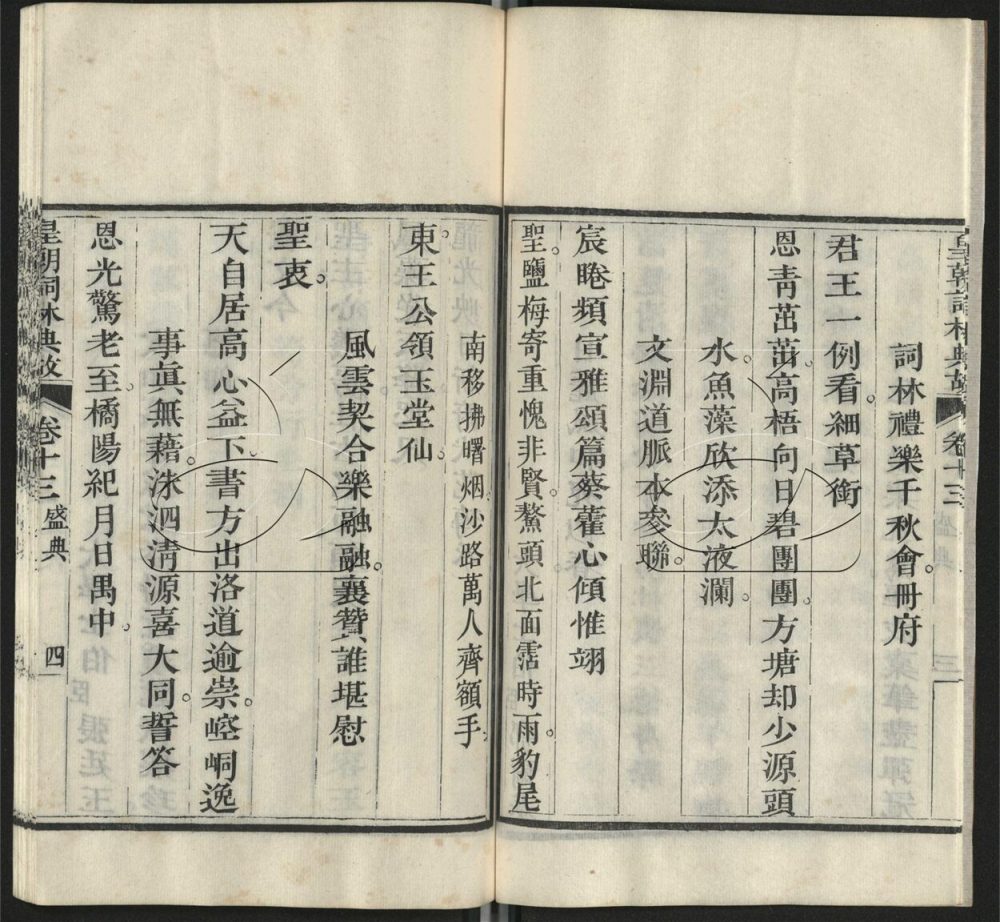 皇朝詞林典故 卷十三 三
詞林禮樂千秋會。冊府
君王一例看。細草銜
恩青茁茁。高梧向日碧團團。方塘却少源頭
水。魚藻欣添太液瀾。
文淵道脈本叅聯。
宸睠頻宣雅頌篇。葵藿心傾惟翊
聖。鹽梅寄重愧非賢。鰲頭北面霑時雨。豹尾
南移拂曙烟。沙路萬人齊額手。
東王公領玉堂仙。
風雲契合樂融融。襄贊誰堪慰
聖衷。
天自居高心益下。書方出洛道逾崇。崆峒逸
事眞無藉。洙泗淸源喜大同。誓答
恩光驚老至。橋陽紀月日禺中。
皇朝詞林典故 卷十三 盛典 四